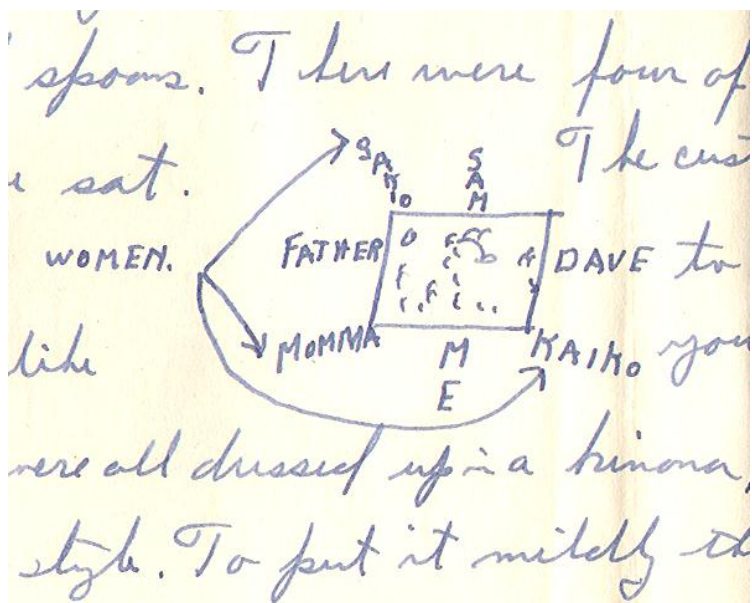 spoons. There were four of
sat. The cus
SAKO
SAM
WOMEN. FATHER DAVE to
MOMMA ME KAIKO
like you
were all dressed up in a kimona,
style. To put it mildly th